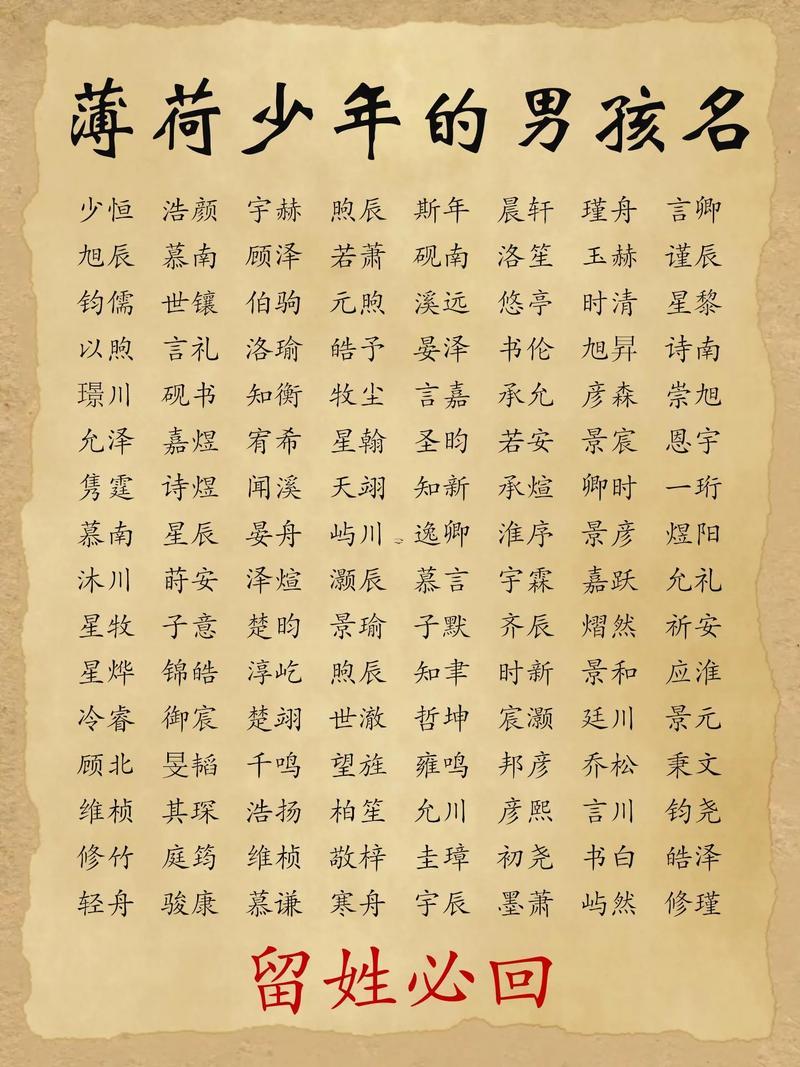 薄荷少年的男孩名
少恒 浩颜 宇赫 煦辰 斯年 晨轩 瑾舟 言卿
旭辰 慕南 顾泽 若萧 砚南 洛笙 玉赫 谨辰
钧儒 世镶 伯驹 元煦 溪远 悠亭 时清 星黎
以煦 言礼 洛瑜 皓予 晏泽 书伦 旭昇 诗南
璟川 砚书 知衡 牧尘 言嘉 承允 彦森 崇旭
允泽 嘉煜 宥希 星翰 圣昀 若安 景宸 恩宇
隽霆 诗煜 闻溪 天翊 知新 承煊 卿时 一珩
慕南 星辰 晏舟 屿川 逸卿 淮序 景彦 煜阳
沐川 莳安 泽煊 灏辰 慕言 宇霖 嘉跃 允礼
星牧 子意 楚昀 景瑜 子默 齐辰 熠然 祈安
星烨 锦皓 淳屹 煦辰 知聿 时新 景和 应淮
冷睿 御宸 楚翊 世澈 哲坤 宸灏 廷川 景元
顾北 旻韬 千鸣 望旌 雍鸣 邦彦 乔松 秉文
维桢 其琛 浩扬 柏笙 允川 彦熙 言川 钧尧
修竹 庭筠 维桢 敬梓 圭璋 初尧 书白 皓泽
轻舟 骏康 慕谦 寒舟 宇辰 墨萧 屿然 修瑾
留姓必回